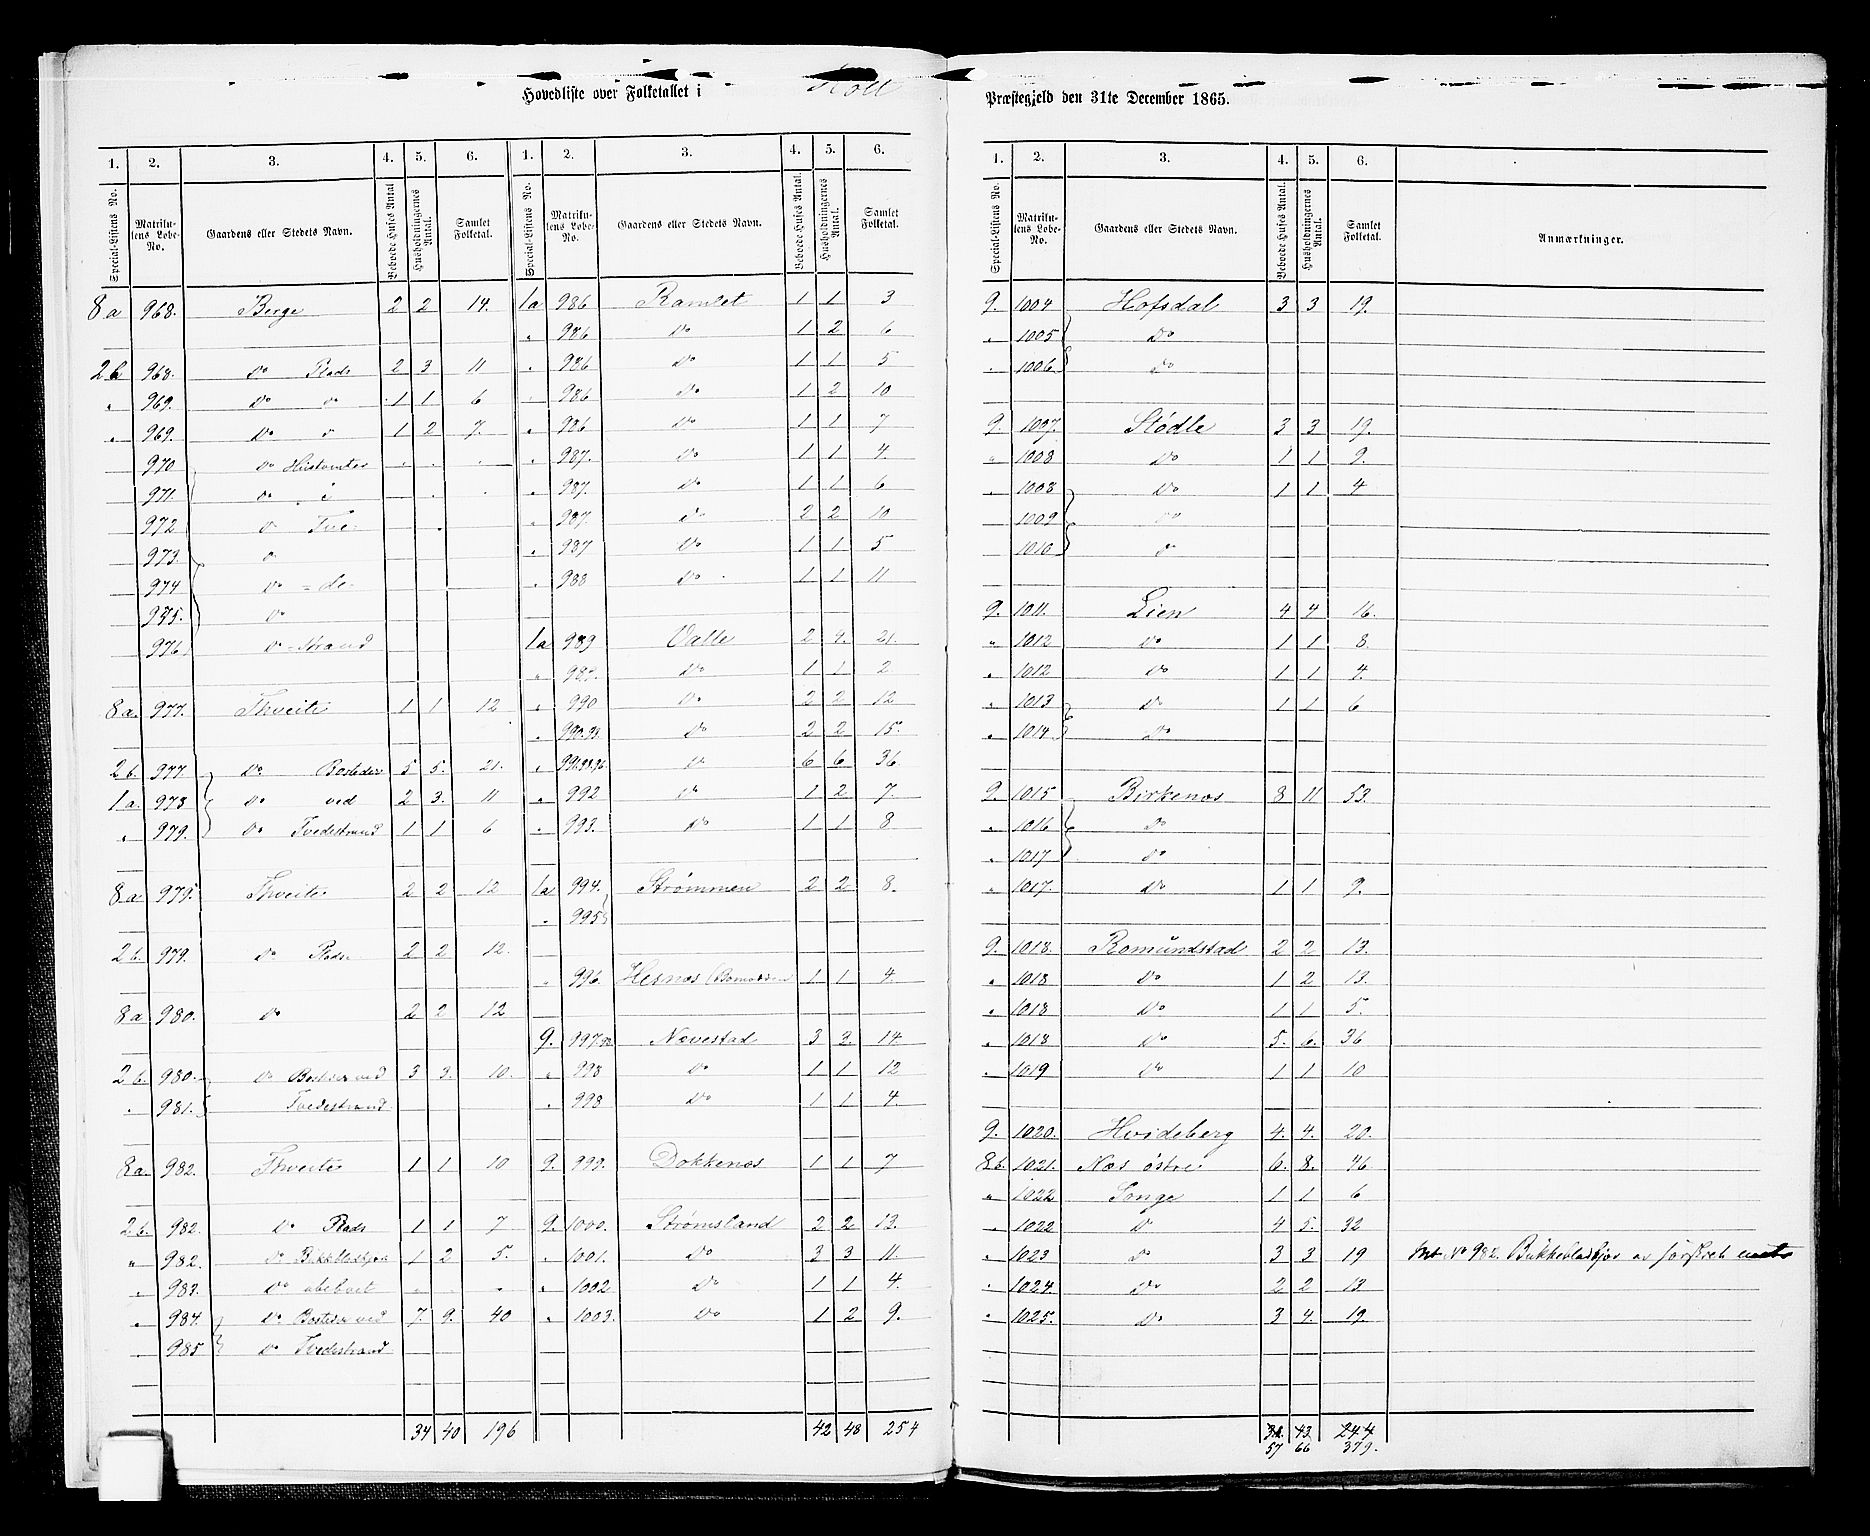 Hovedliste over Folketallet i Holt Præstegjeld den 31te December 1865.
1. 2. 3. 4. 5. 6.
Special-Listens No. Matrikulens Løbe-No. Gaardens eller Stedets Navn. Beboede Huses Antal Husholdningernes Antal. Samlet Folketal.
8a 968. Berge 2 2 14.
2b 968. Do Plads 2 3 11
„ 969. Do o 1 1 6
„ 969. Do o 1 2 7.
970 Do Hustomter . . .
971. o i . .
972 o Tve- .
973. o
974 Do =de-
975. o
976 o =strand
8a. 977. Thveite 1 1 12
2b. 977. Do Bosteder 5 5. 21.
1a. 978 Do ved 2 3. 11
„ 979. Do Tvedestrand 1 1 6
8a 979. Thveite 2 2 12
2b. 979. Do Pladse 2 2 12.
8a 980. Do 2 2 12
2b. 980. Do Bosteder ved 3 3. 10.
„ 981. Tvedestrand
8a. 982. Thveite 1 1 10
2b. 982. Do Plads 1 1 7
„ 982. Do 1 2 5.
„ 983. Do ubeboet . . .
„ 984. Do Bosteder ved 7. 9. 40
„ 985 Do Tvedestrand
34 40 196
1. 2. 3. 4. 5. 6.
Special-Listens No. Matrikulens Løbe-No. Gaardens eller Stedets Navn. Beboede Huses Antal. Husholdningernes Antal. Samlet Folketal.
1a 986 Ramlet 1 1 3
„ 986 Do 1 2 6
„ 986 Do 1 1 5
„ 986 Do 1 2 10
„ 986 Do 1 1 7
„ 987. Do 1 1 4.
„ 987. Do 1 1 6
„ 987. Do 2 2 10
„ 987 Do 1 1 5
„ 988 Do 1 1 11
1a 989 Valle 2 4. 21.
„ 989. Do 1 1 2
„ 990 Do 2 2 12
„ Do 2 2 15.
„ Do 6 6 36.
„ 992 Do 1 2 7.
„ 993. Do 1 1 8
1a 994. Strømmen 2 2 8.
„ 995
„ 996. Hesnæs 1 1 4.
9. Nævestad 3 3. 14
„ 998 Do 1 1 12
„ 998 Do 1 1 4.
9. 999. Dokkenæs 1 1 7
9. 1000. Strømsland 2 2 13.
„ 1001. Do 3 3 11.
„ 1002. Do 1 1 4.
„ 1003. Do 1 2 9.
42 48 254
1. 2. 3. 4. 5. 6.
Special-Listens No. Matrikulens Løbe-No. Gaardens eller Stedets Navn. Beboede Huses Antal. Husholdningernes Antal. Samlet Folketal. Anmærkninger.
9. 1004 Hofsdal 3 3 19.
„ 1005 Do
„ 1006 Do
9. 1007. Stødle 3 3 19.
„ 1008 Do 1 1 9.
„ 1008 Do 1 1 4
1009 Do
1010 o
9. 1011. Lien 4 4 16.
„ 1012 Do 1 1 8.
„ 1012 Do 1 1 4.
„ 1013 Do 1 1 6
„ 1014. Do
9. 1015 Birkenæs 8 11 53.
„ 1016 Do
„ 1017 Do
„ 1017. Do 1 1 9.
9. 1018. Romundstad 2 2 13.
„ 1018 Do 1 2 13.
„ 1018 Do 1 1 5.
„ 1018 Do 5. 6. 36
„ 1019 Do 1 1 10
9. 1020. Hvideberg 4. 4. 20.
8b. 1021. Næs østre 6. 8. 46
„ 1022 Songe 1 1 6
„ 1022 Do 4 5. 32
„ 1023 Do 3 3 19 Mt No 982.
„ 1024. Do 2 2 13
„ 1025. Do 3 4. 19.
43 244
57 66 379.